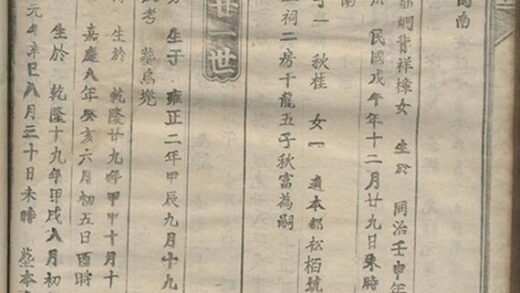 背祥樟女 生於 同治壬申年
民國戊午年十二月廿九日未時
南
一 秋桂 女一 適本都松栢坑
祠二房十龍五子秋富為嗣
廿一世
生于 雍正二年甲辰九月十九
考 葬烏兜
生於 乾隆廿九年甲申十月十
嘉慶八年癸亥六月初五日酉時
生於 乾隆十九年甲戌八月初
元年辛巳八月三十日未時 葬本